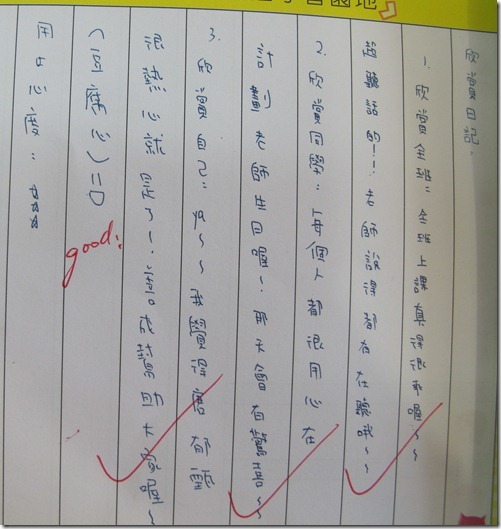 習園地
欣賞日記：
1. 欣賞全班：全班上課真得很乖喔~~
超聽話的!!老師說得都有在聽哦~~
2. 欣賞同學：每個人都很用心在
計劃老師生日喔~!那天會有驚喜~~
3. 欣賞自己：ya~~我覺得
很熱心就是了~! 幫助大家喔~
(豆腐心)=口
good!
用心度：☆☆☆